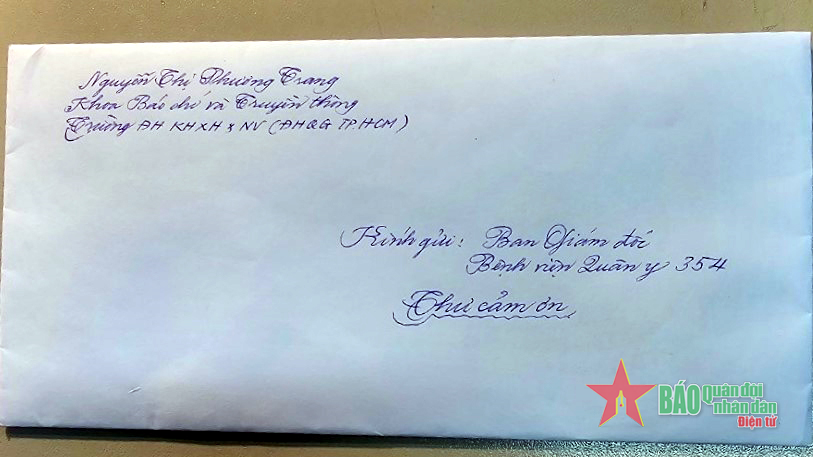 Nguyễn Thị Phương Trang
Khoa Báo chí và Truyền thông
Trường ĐH KHXH & NV (ĐHQG TP.HCM)
Kính gửi: Ban Giám đốc
Bệnh viện Quân y 354
Thư cảm ơn
BÁO Quân đội
nhân dân
Điện tử